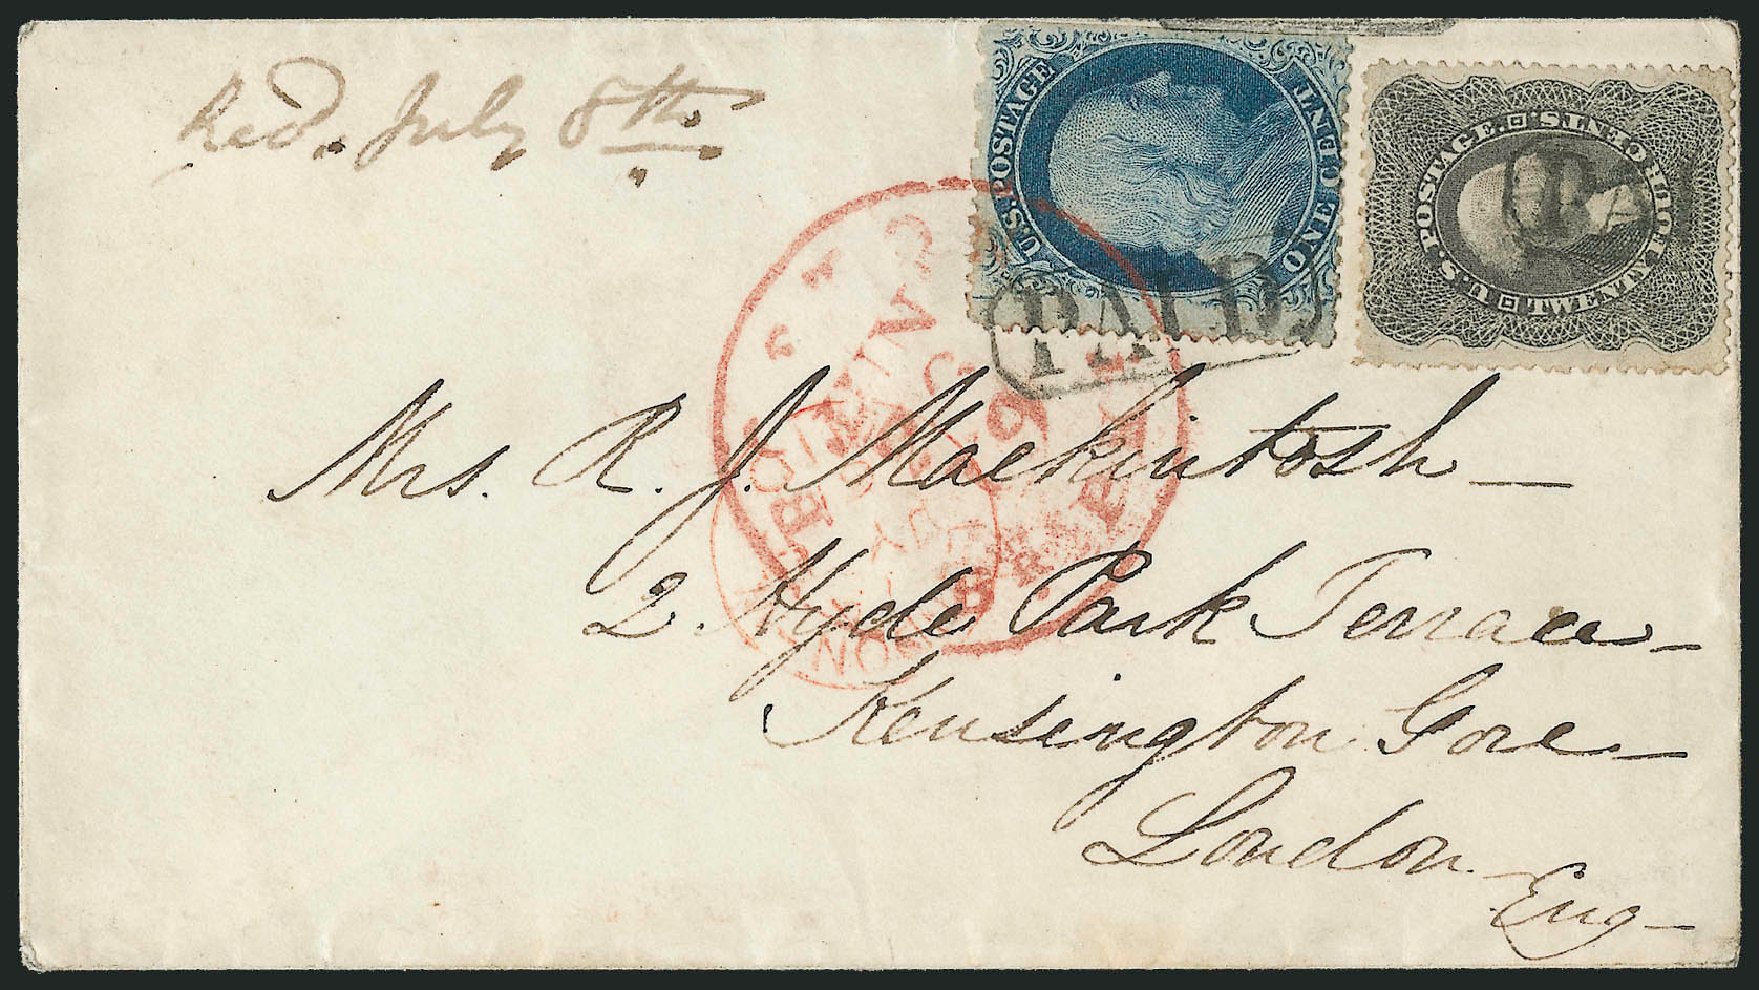 Recd. July 8th.
U.S. POSTAGE
ONE CENT
PAID
U.S. POSTAGE.
TWENTY FOUR CENTS.
PAI
Mrs. R. J. Mackintosh
2. Hyde Park Terrace
Kensington Gore
London
Eng